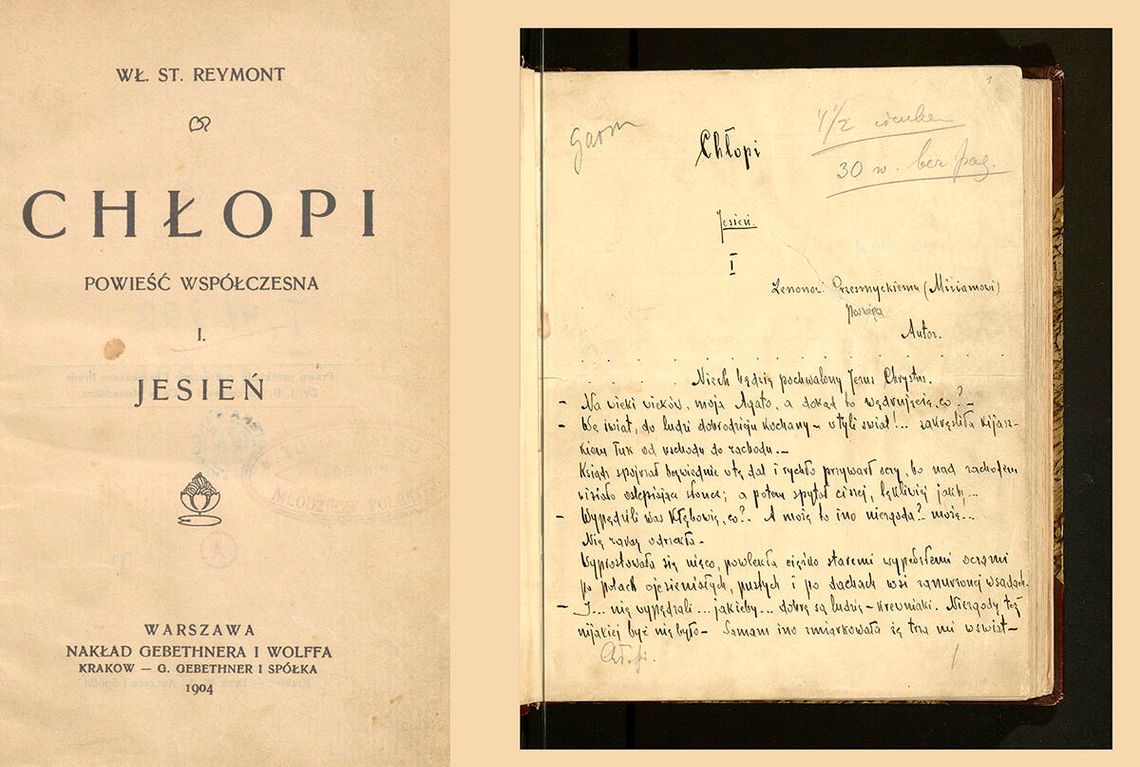 WŁ. ST. REYMONT
CHŁOPI
POWIEŚĆ WSPÓŁCZESNA
I.
JESIEŃ
WARSZAWA
NAKŁAD GEBETHNERA I WOLFFA
KRAKOW — G. GEBETHNER I SPÓŁKA
1904
1
Chłopi
4 1/2
30 w. bez pag.
Jesień.
I
Zenonowi Przesmyckiemu (Miriamowi)
poświęca
Autor.
Niech będzie pochwalony Jezus Chrystus.
– Na wieki wieków, moja Agato, a dokąd to wędrujecie, co? –
– We świat, do ludzi dobrodzieju kochany – w tyli świat!... zakreśliła kijasz-
kiem łuk od wschodu do zachodu. –
Ksiądz spojrzał bezwiednie w tę dal i rychło przywarł oczy, bo nad zachodem
wisiało oślepiające słońce; a potem spytał ciszej, lękliwiej jakby...
– Wypędzili was Kłębowie, co?. A może to ino niezgoda?.. może...
Nie zaraz odrzekła –
Wyprostowała się nieco, powlekła ciężko staremi wypełzłemi oczami
po polach ojesieniałych, pustych i po dachach wsi zanurzonej w sadach.
– I... nie wypędzali... jakżeby... dobre są ludzie – krewniaki. Niezgody też
nijakiej być nie było – Samam ino zmiarkowała że trza mi w świat –
Chłopi.
1